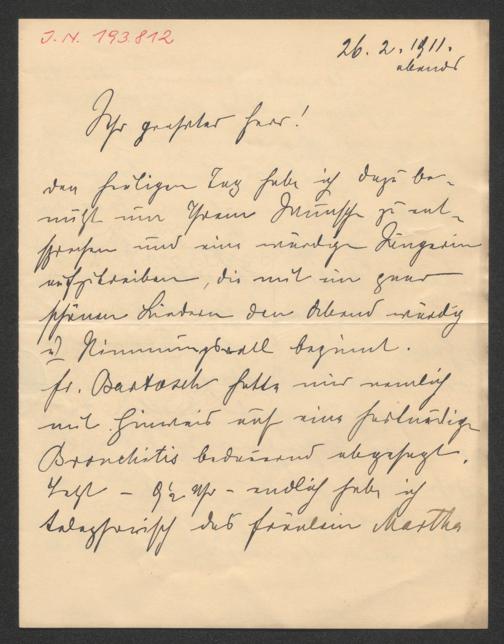 J.N. 193.812
26.2.1911.
abends
Sehr geehrter Herr!
den heutigen Tag habe ich dazu be-
nützt um Ihrem Wunsche zu ent-
sprechen und eine würdige Sängerin
aufzutreiben, die mit ein paar
schönen Liedern den Abend würdig
u. stimmungsvoll beginnt.
Fr. Bartosch hatte mir nemlich
mit Hinweis auf eine hartnäckige
Bronchitis bedauernd abgesagt.
Jetzt – 9½ Uhr – endlich habe ich
telephonisch das Fräulein Martha